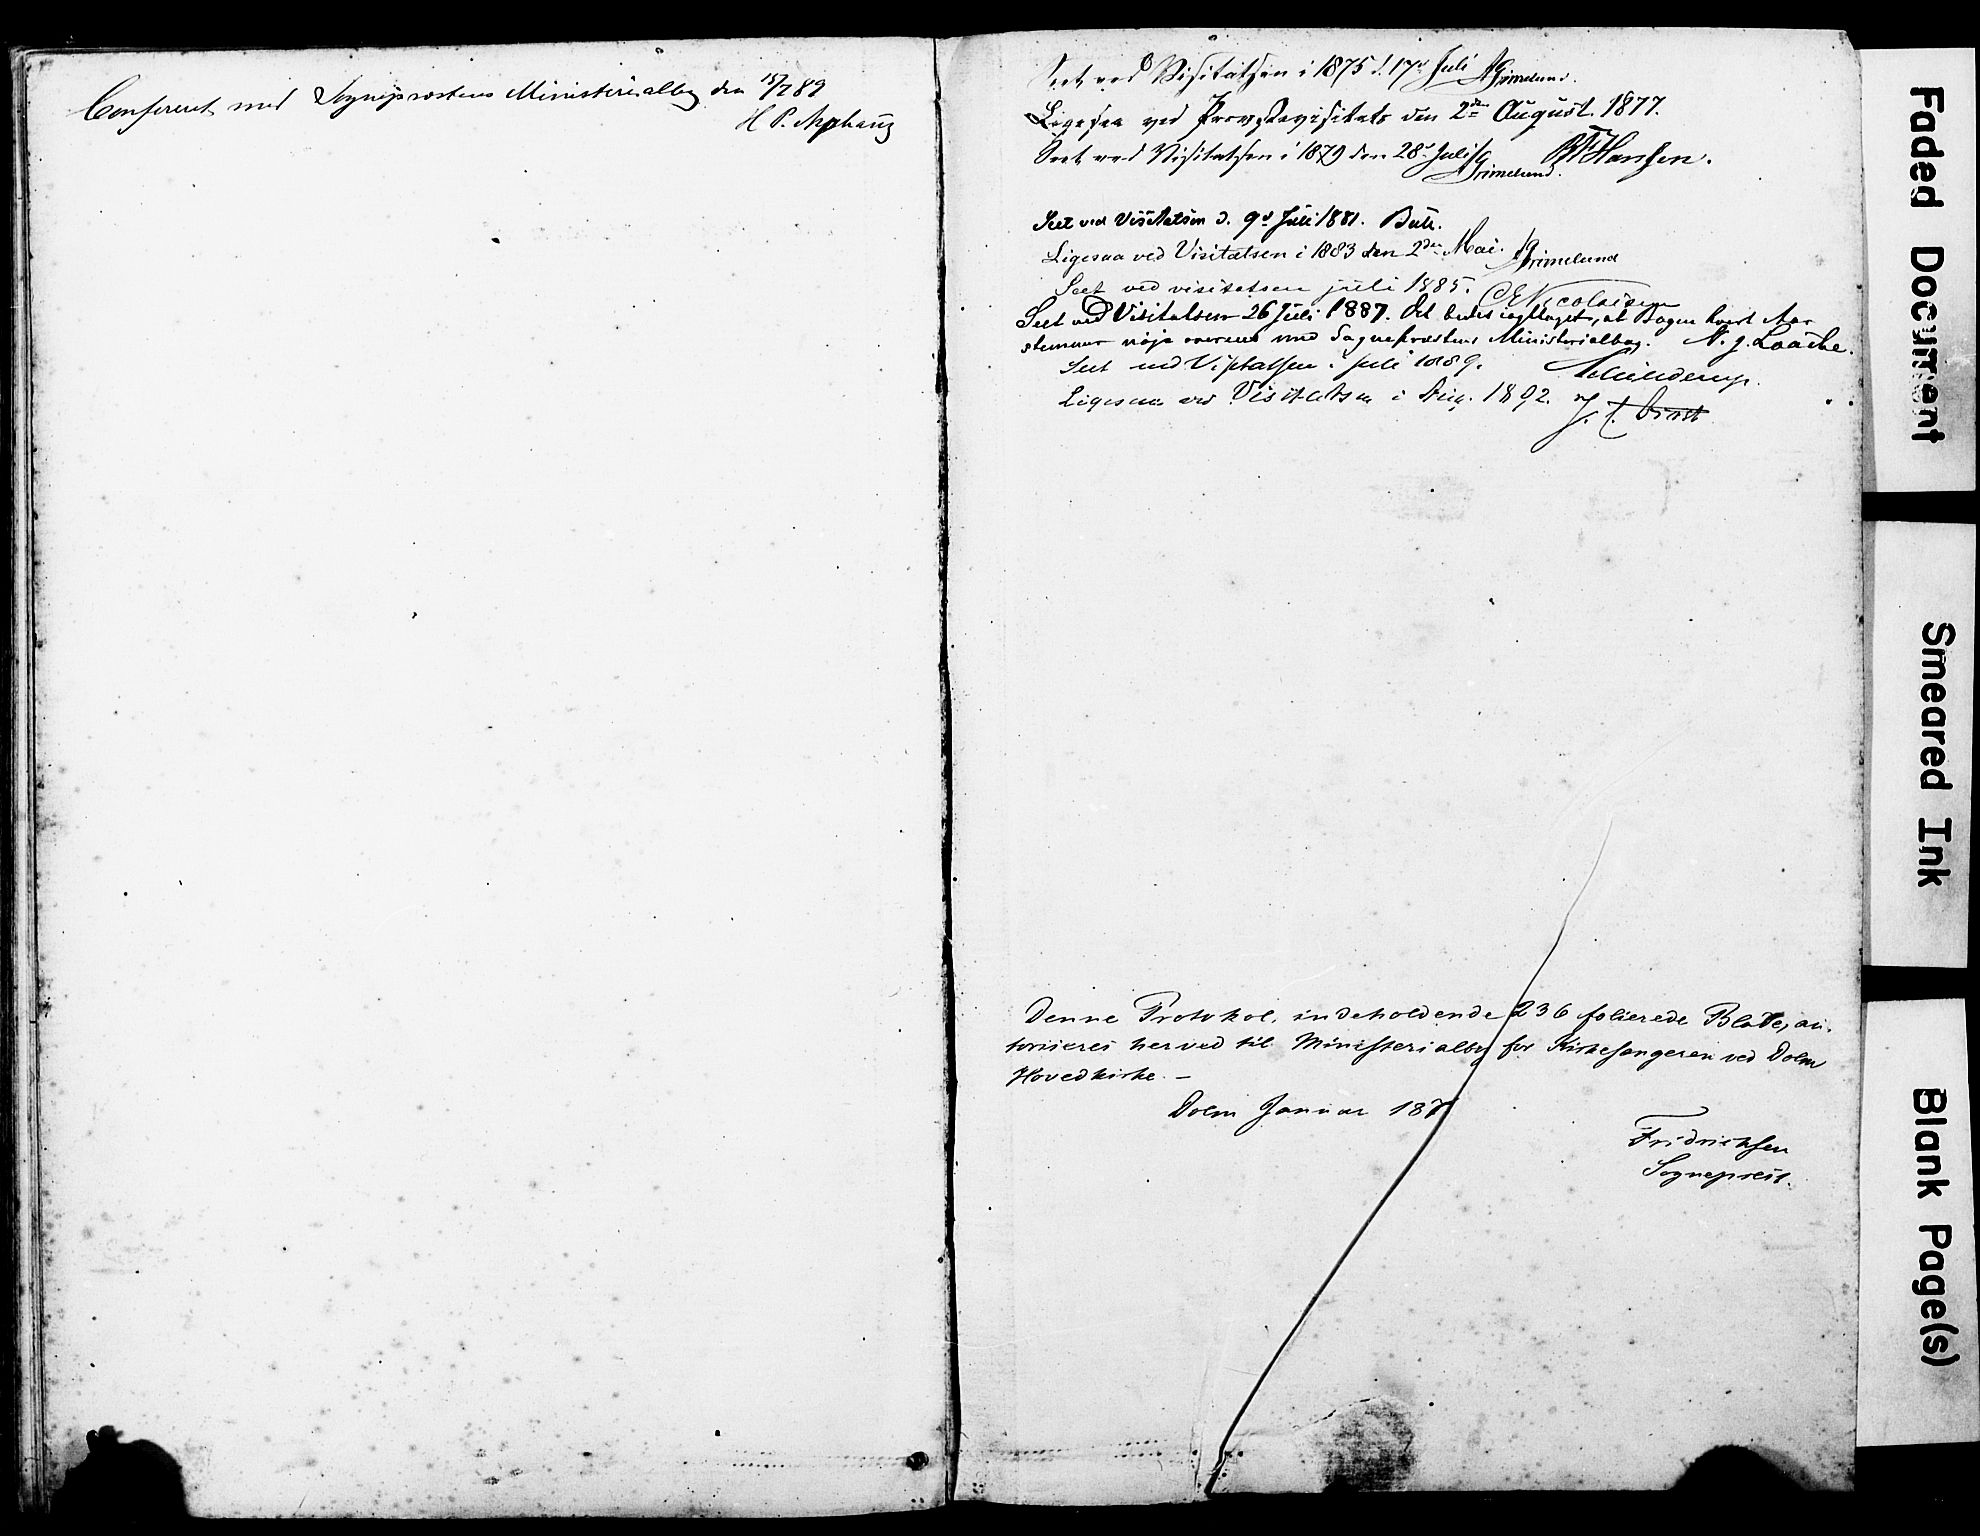 Confereret med Sogneprestens Ministerialbog den 15/7 89
H. P.
Seet ved Visitatsen i 1875 d. 17de Juli AGrimelund.
Ligesaa ved Provstevisitats den 2den August. 1877.
Seet ved Visitatsen i 1879 den 28de Juli AGrimelund. Hansen.
Seet ved Visitatsen d. 9de Juli 1881.
Ligesaa ved Visitatsen i 1883 den 2den Mai. AGrimelund
Seet ved visitatsen juli 1885. Nicolaisen
Seet ved Visitatsen 26 Juli 1887. Det bedes iagttaget, at Bogen hvert Aar
stemmer nøje overens med Sogneprestens Ministerialbog. N. J. Laache.
Seet ved Visitatsen i juli 1889.
Ligesaa ved Visitatsen i Aug. 1892.
Denne Protokol, indeholdende 236 folierede Blade, au-
toriseres herved til Ministerialbog for Kirkesangeren ved Dolm
Hovedkirke. –
Dolm Januar
Fridrichsen
Sogneprest.
Faded Document
Smeared Ink
Blank Page(s)